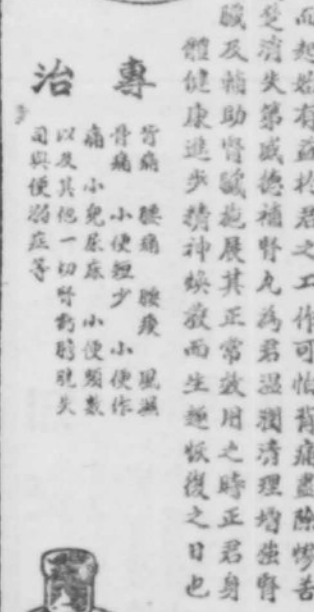 而起始有益於君之工作可怕背痛盡除慘苦
楚消失第威德補腎丸為君溫潤清理增強腎
臟及輔助腎臟施展其正常效用之時正君身
體健康進步精神煥發而生趣恢復之日也
專治
背痛 腰痛 腰痠 風濕
骨痛 小便短少 小便作
痛 小兒尿床 小便頻數
以及其他一切腎臟膀胱失
司與便溺症等